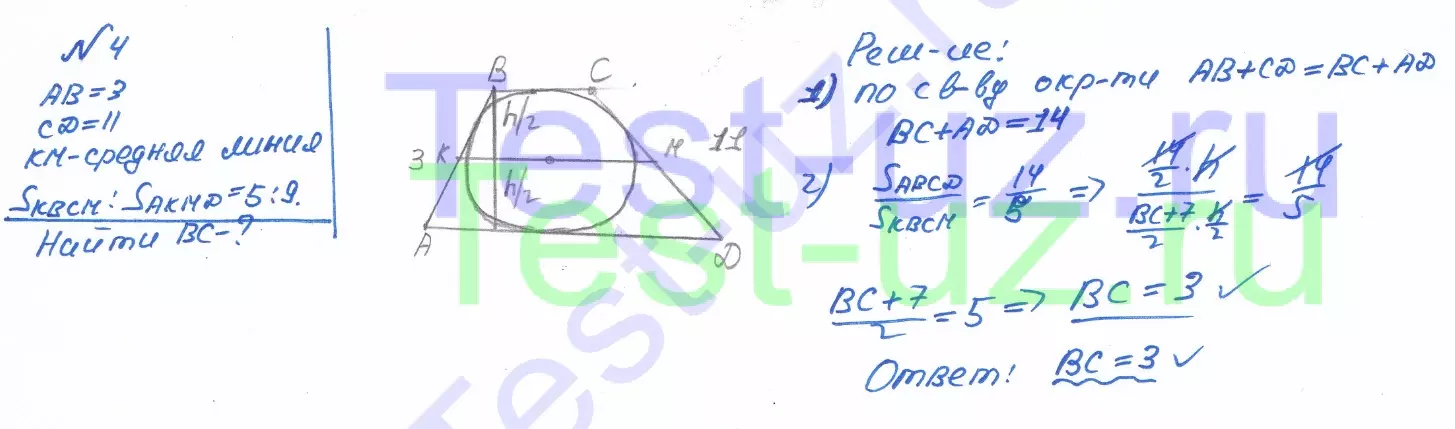 № 4
AB = 3
CD = 11
KM - средняя линия
S_KBCM : S_AKMD = 5 : 9.
Найти BC - ?
B C
h/2
3 K M 11
h/2
A D
Реш-ие:
1) по св-ву окр-ти AB + CD = BC + AD
BC + AD = 14
2) S_ABCD / S_KBCM = 14/5 => (14/2 · h) / ((BC+7)/2 · h/2) = 14/5
(BC+7)/2 = 5 => BC = 3 ✓
Ответ: BC = 3 ✓
Test-uz.ru
Test-uz.ru
Test-uz.ru